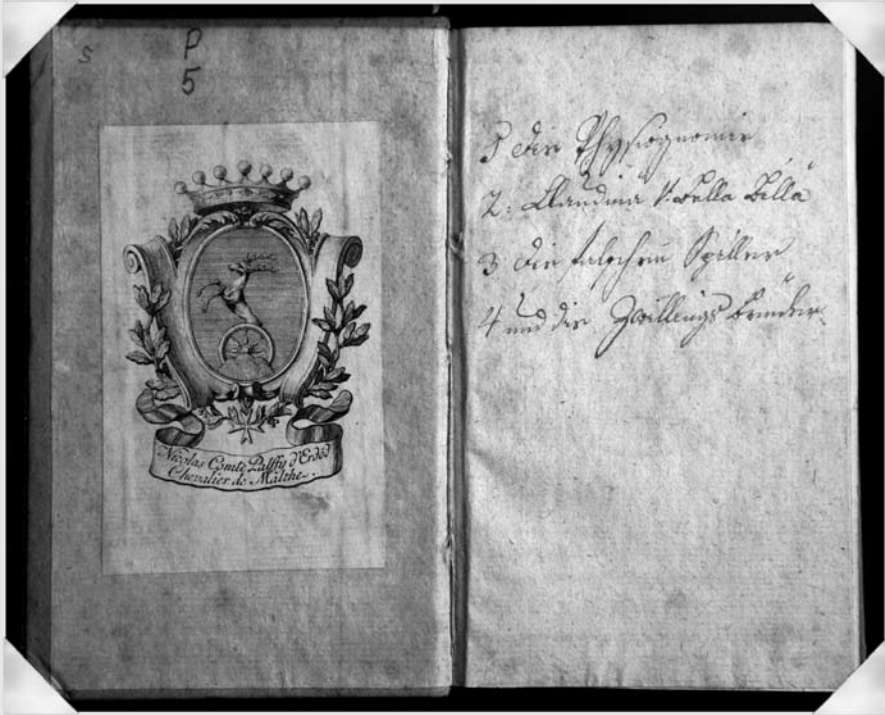 S
P
5
Nicolas Comte Palffy d'Erdöd
Chevalier de Malthe.
1 die Physiognomie
2: Claudina v: Villa Bella
3 die falschen Spieller
4 und die Zwillings brüder